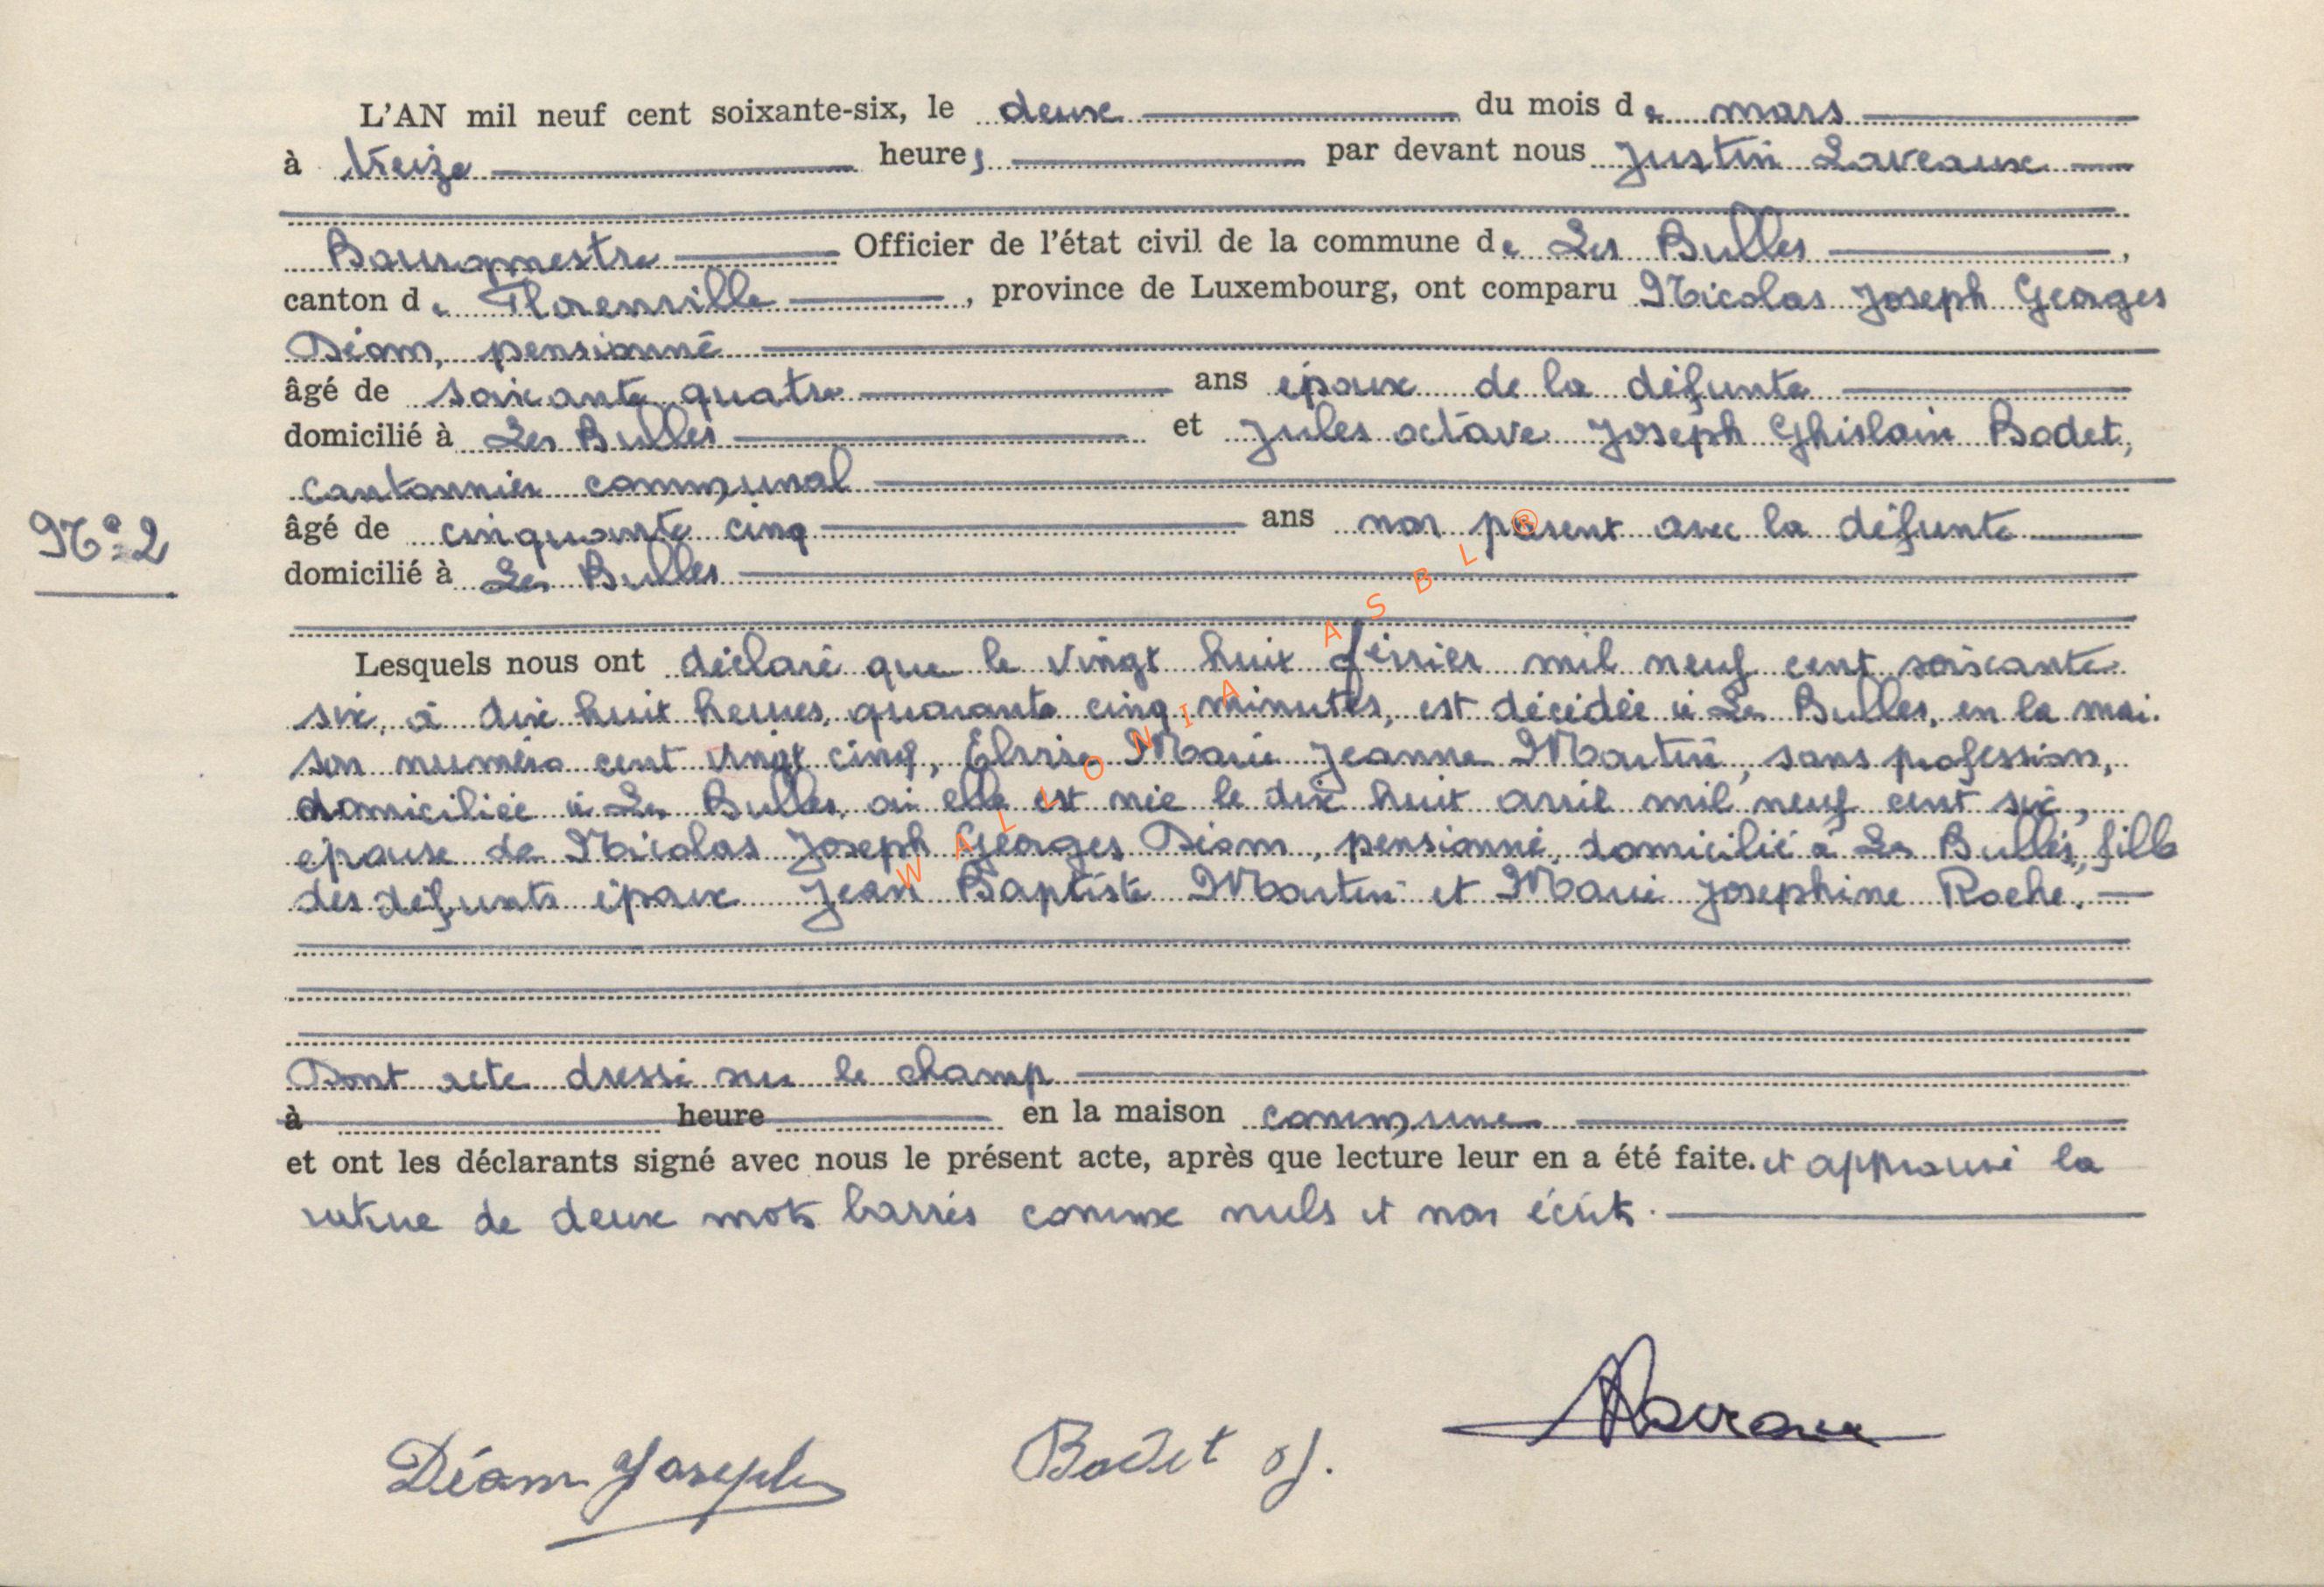 L'AN mil neuf cent soixante-six, le deux du mois de mars
à treize heures par devant nous Justin Laveaux
Bourgmestre Officier de l'état civil de la commune de Les Bulles,
canton de Florenville, province de Luxembourg, ont comparu Nicolas Joseph Georges
Déom, pensionné
âgé de soixante quatre ans époux de la défunte
domicilié à Les Bulles et Jules octave Joseph Ghislain Bodet,
cantonnier communal
N° 2
âgé de cinquante cinq ans non parent avec la défunte
domicilié à Les Bulles
Lesquels nous ont déclaré que le vingt huit février mil neuf cent soixante
six, à dix huit heures, quarante cinq minutes, est décédée à Les Bulles, en la mai-
son numéro cent vingt cinq, Marie Jeanne Martin, sans profession,
domiciliée à Les Bulles, où elle est née le dix huit avril mil neuf cent six,
épouse de Nicolas Joseph Georges Déom, pensionné, domicilié à Les Bulles, fille
des défunts époux Jean Baptiste Martin et Marie Josephine Roche.
Dont acte dressé sur le champ
à heure en la maison commune
et ont les déclarants signé avec nous le présent acte, après que lecture leur en a été faite. et approuvé la
rature de deux mots barrés comme nuls et non écrits.
Déom Joseph Bodet J. Laveaux
WALLONIA ASBL ®